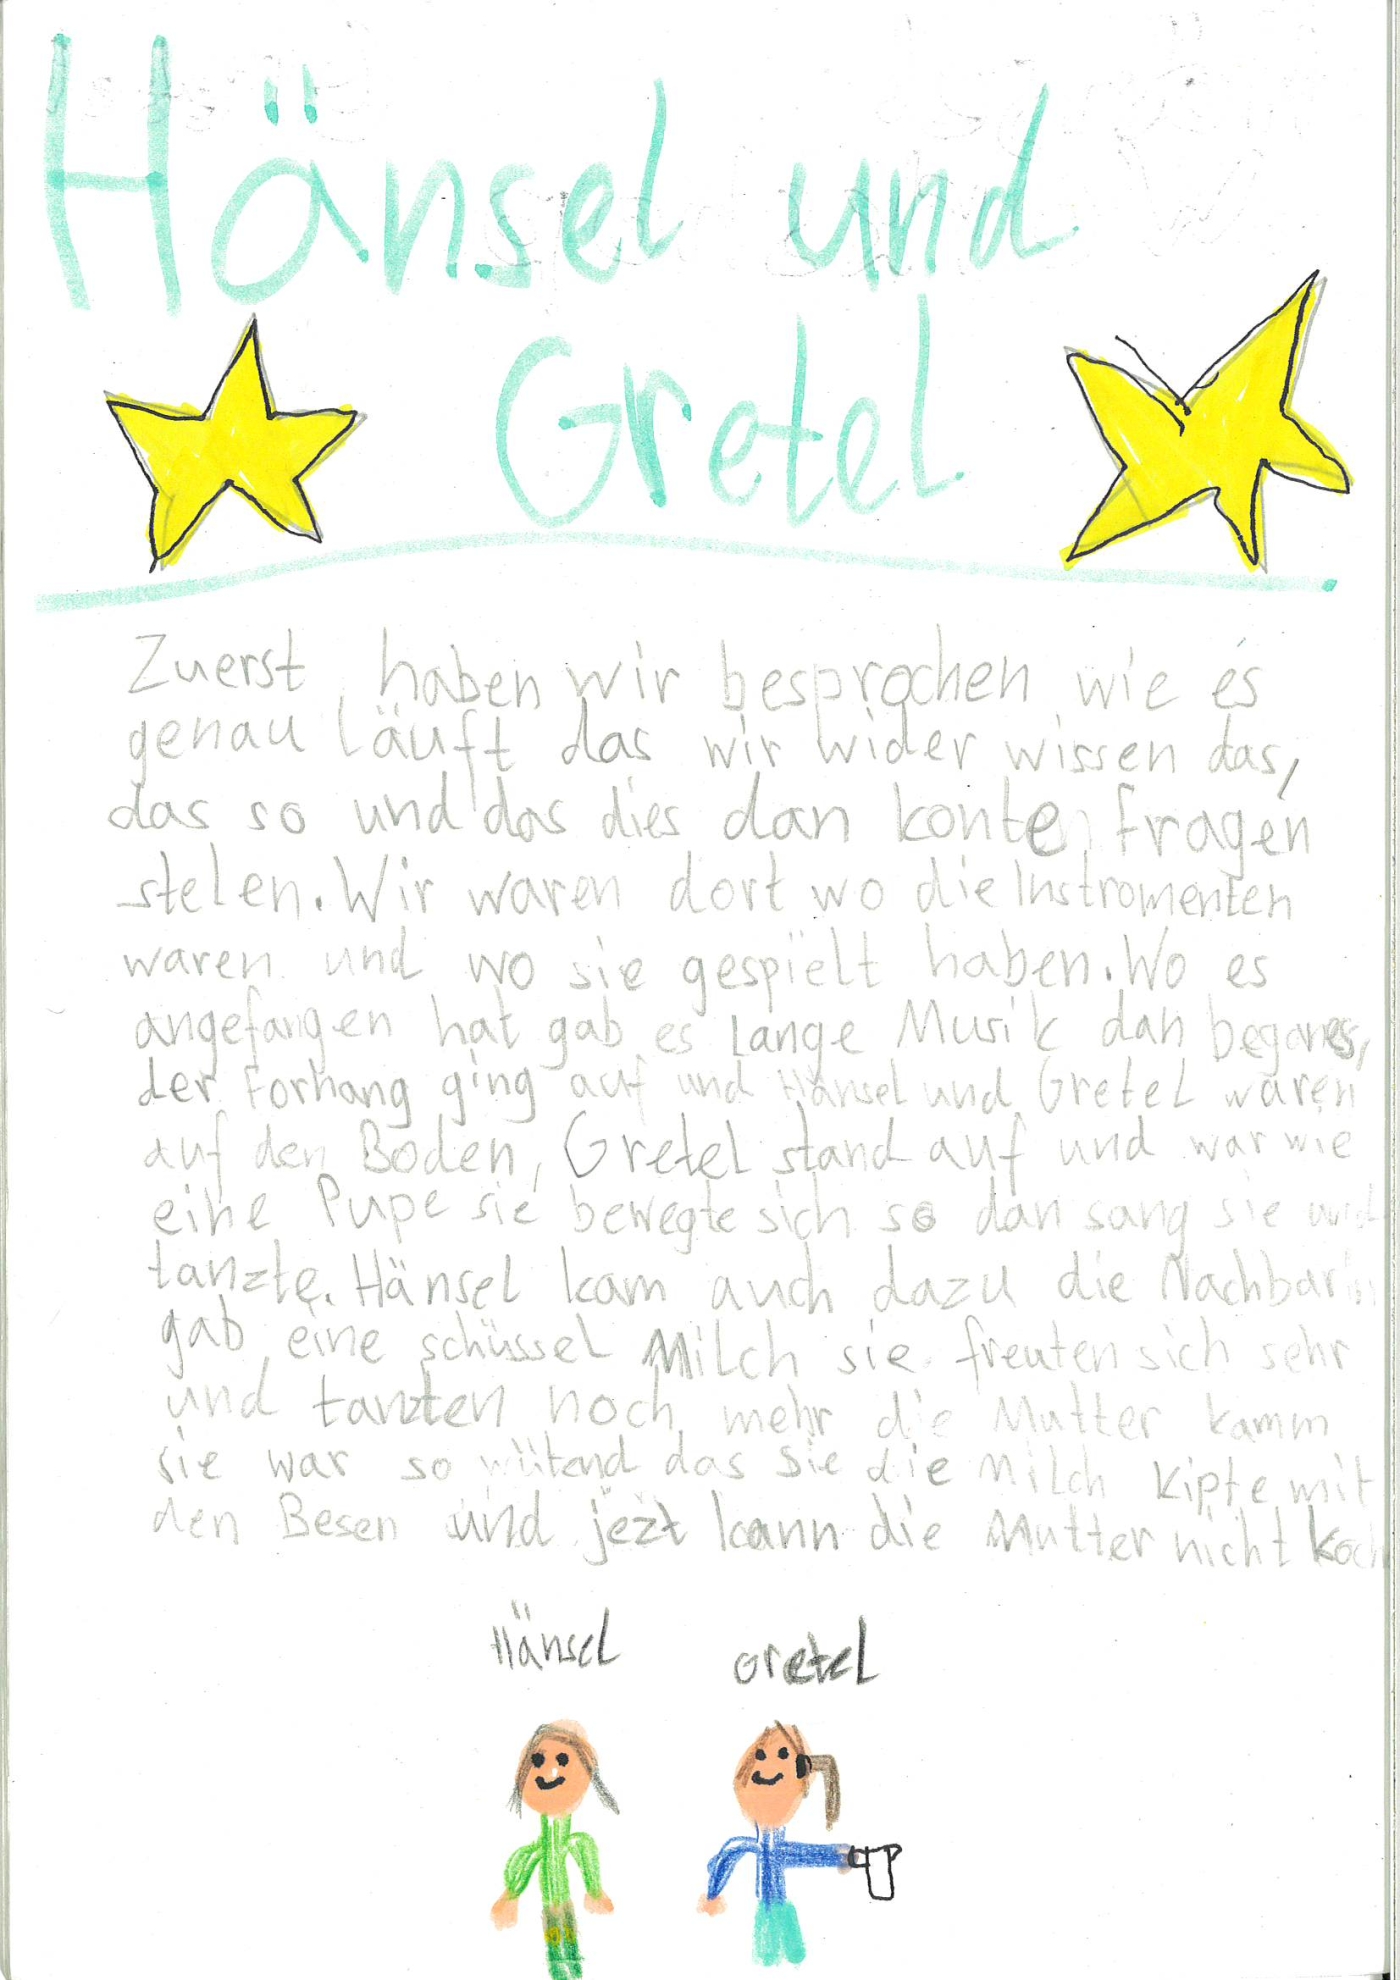 Hänsel und
Gretel
Zuerst haben wir besprochen wie es
genau läuft das wir wider wissen das,
das so und das dies dan konte fragen
stelen. Wir waren dort wo die Instromenten
waren und wo sie gespielt haben. Wo es
angefangen hat gab es Lange Musik dan begones,
der Forhang ging auf und Hänsel und Gretel waren
auf den Boden, Gretel stand auf und war wie
eine Pupe sie bewegte sich so dan sang sie und
tanzte. Hänsel kam auch dazu die Nachbarin
gab eine schüssel Milch sie freuten sich sehr
und tanzten noch mehr die Mutter kamm
sie war so wütend das sie die Milch kipte mit
den Besen und jezt kann die Mutter nicht koch
Hänsel Gretel